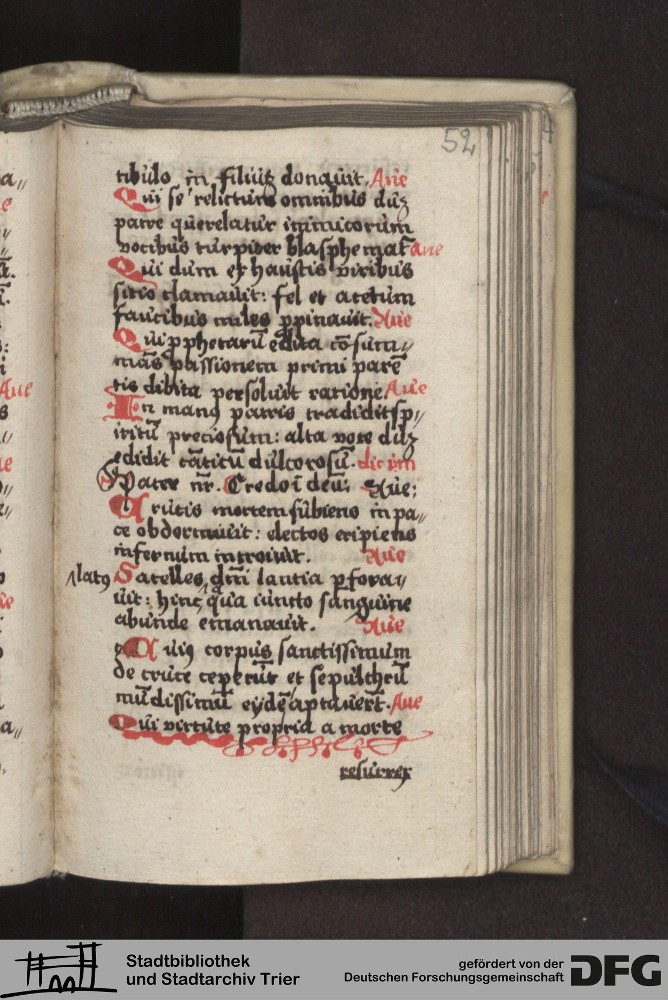 52
tibulo in filiuz donauit. Aue
Qui se relicturu omnibus duz
patre querelatur inimicorum
vocibus turpiter blasphemat̄ Aue
Qui dum exhaustis viribus
sitio clamauit: fel et acetum
faucibus miles ꝓpinauit. Aue
Qui ꝓphetarū edita cōsum//
mās passionem primi parē
tis dibita persoluit ratione. Aue
In manꝰ patris tradidit sp//
iritū preciosum: alta voce duz
edidit cāticū dulcorosū.
Pater nr̄. Credo ī deū. Aue:
Crucis mortem subiens in pa//
ce obdormiuit: electos eripiens
infernum introiuit. Aue
latꝰ
Satelles dn̄i lancia ꝑforai//
uit: hinc qua cuncto sanguine
abunde emanauit. Aue
Cuiꝰ corpus sanctissimum
de cruce ceperūt et sepulchrū
mūdissimū eydē aptauerūt. Aue
Qui virtute propria a morte
resurrex
Stadtbibliothek
und Stadtarchiv Trier
gefördert von der
Deutschen Forschungsgemeinschaft
DFG